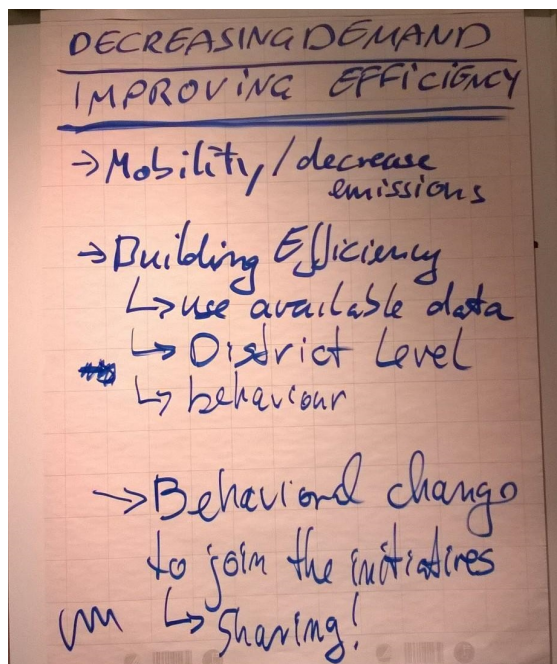 DECREASING DEMAND
IMPROVING EFFICIENCY
→ Mobility / decrease
emissions
→ Building Efficiency
↳ use available data
↳ District Level
↳ behaviour
→ Behavioral change
to join the initiatives
↳ Sharing!